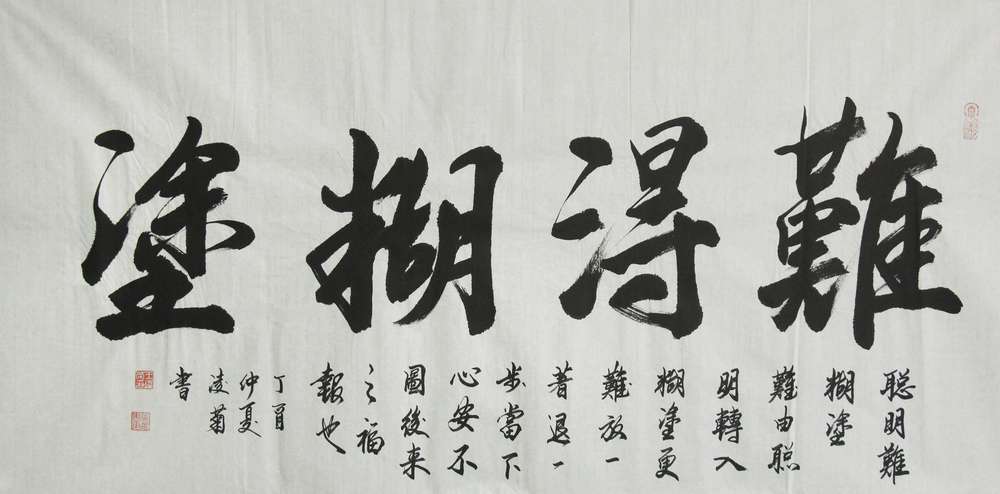 難得糊塗
聪明難
糊塗
難由聪
明轉入
糊塗更
難放一
著退一
步當下
心安不
圖後来
之福
報也
丁酉
仲夏
凌菊
書